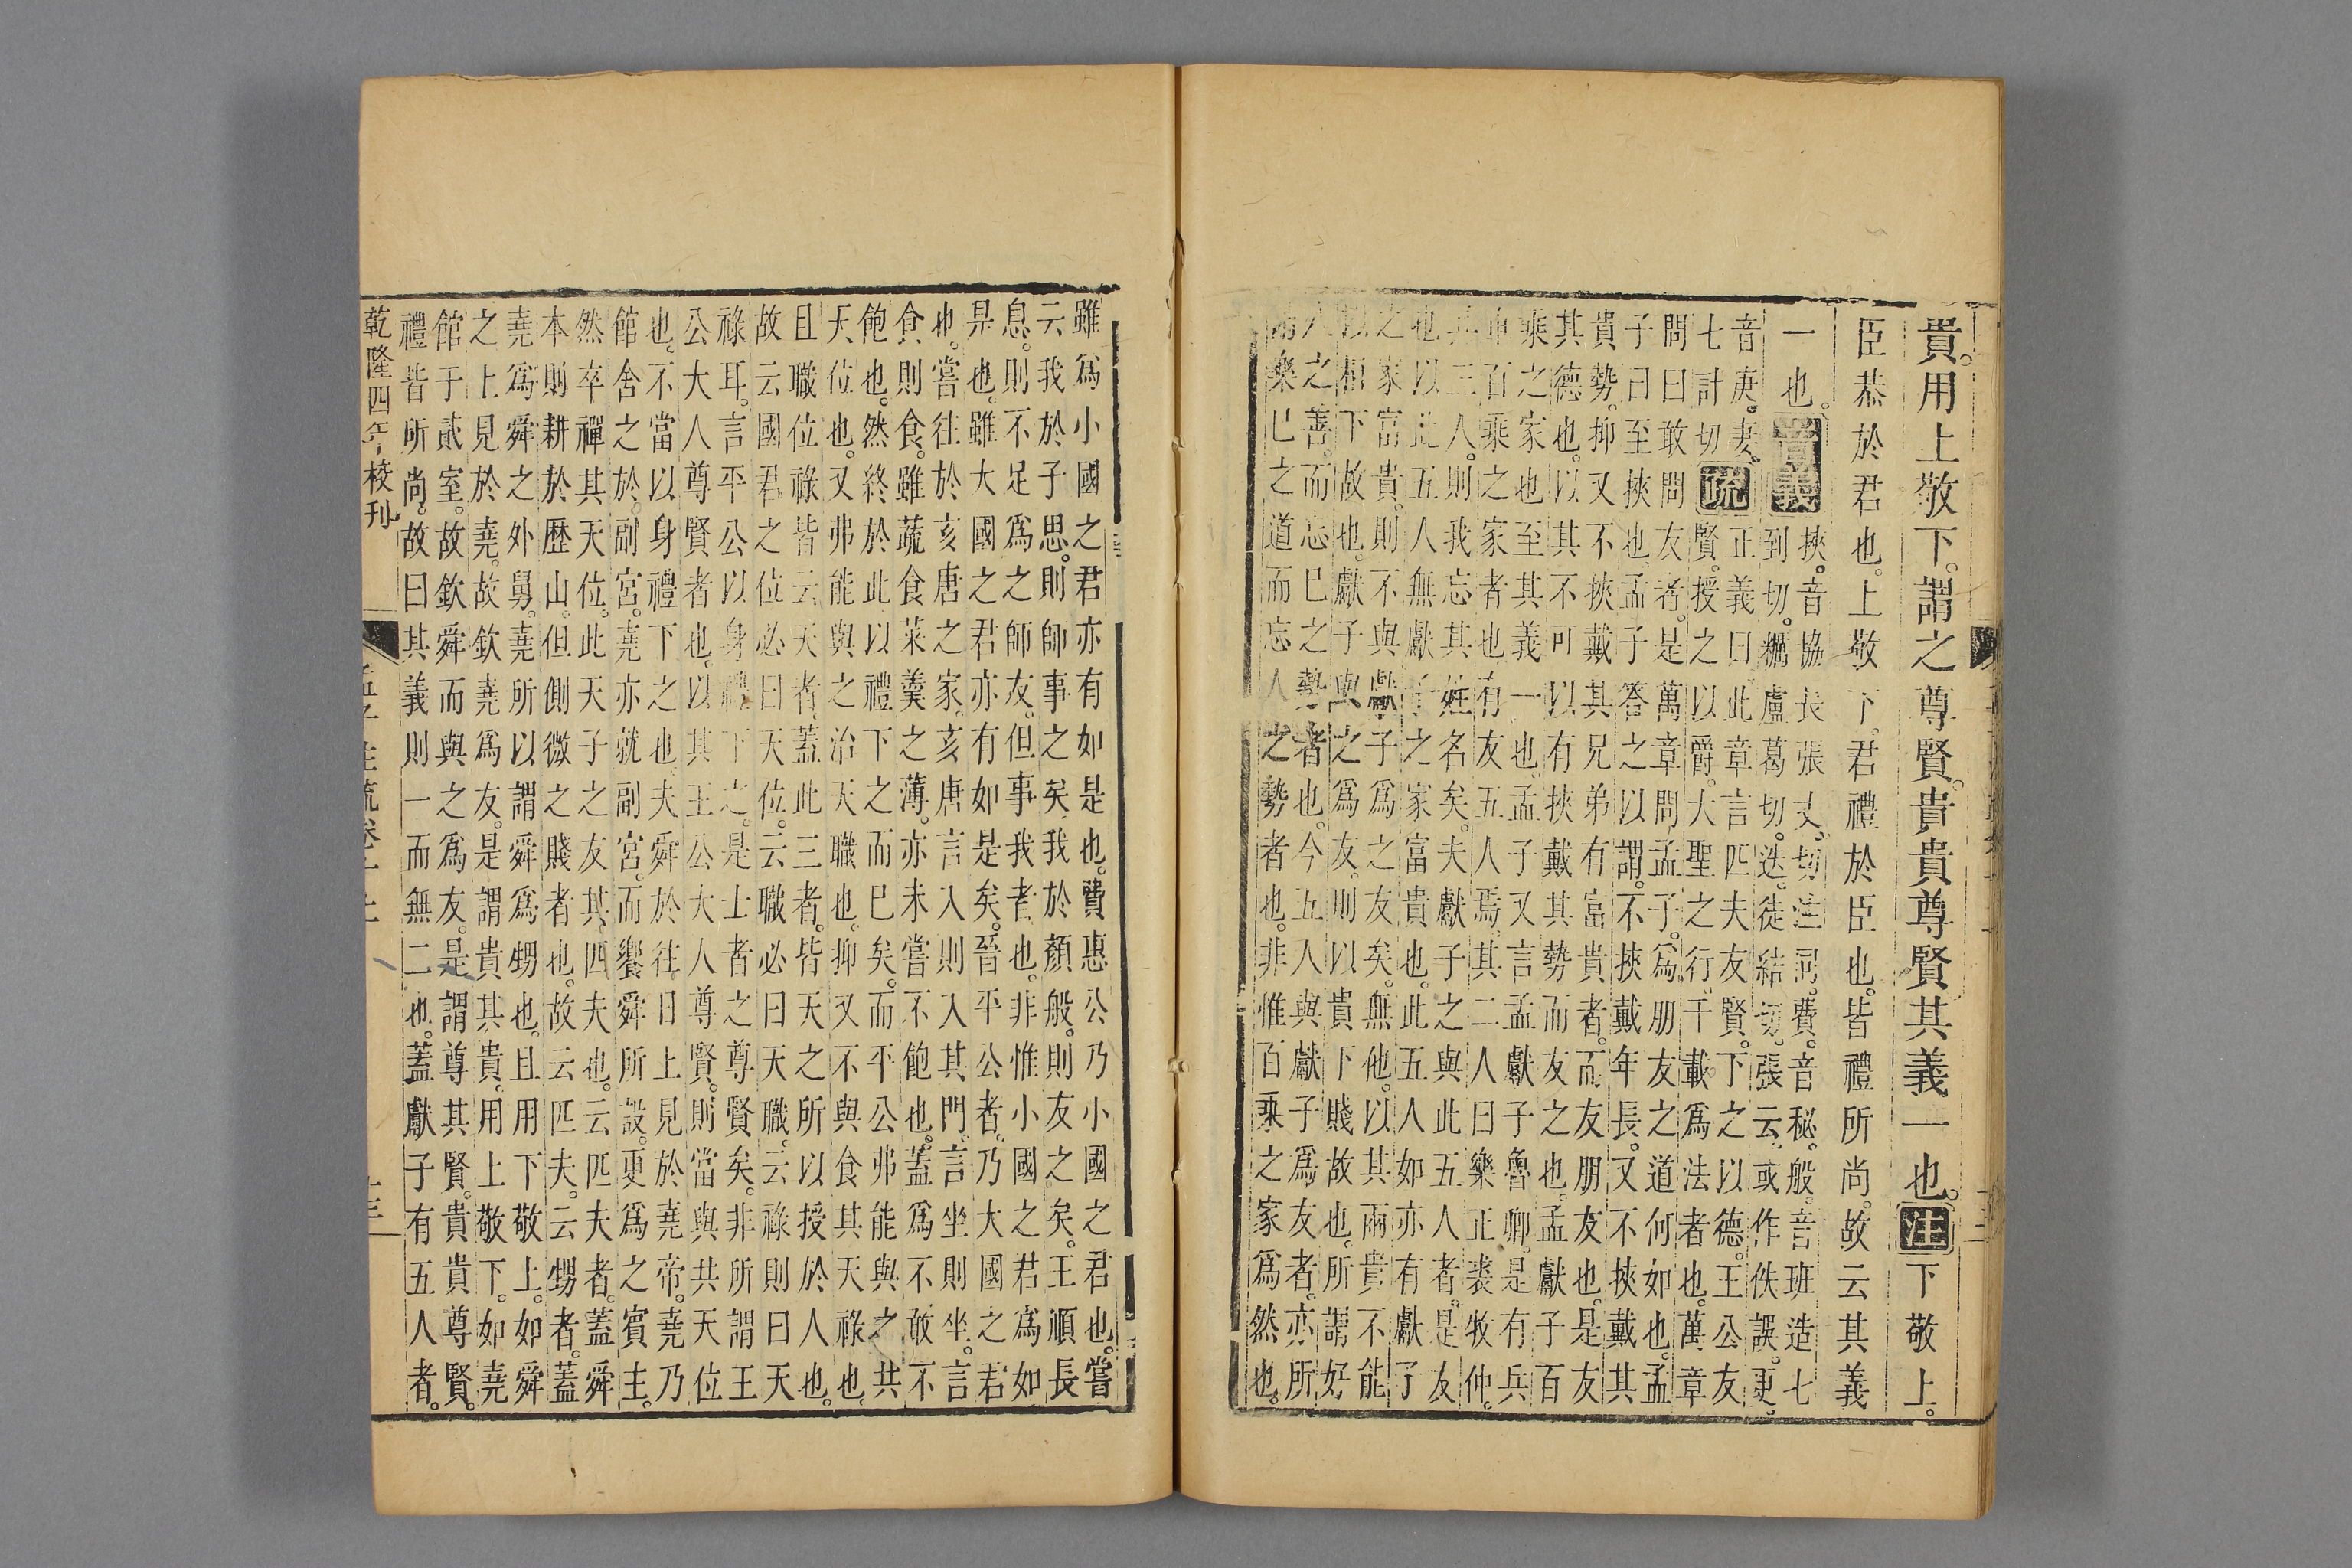 貴。用上敬下。謂之尊賢。貴貴尊賢其義一也。注下敬上。
臣恭於君也。上敬下。君禮於臣也。皆禮所尚。故云其義
一也。音義
挾。音協長張丈切注同。費。音秘。般。音班造七
到切。糲盧葛切。迭。徒結切。張云。或作佚誤。更。
音庚。妻。
七計切疏
正義曰此章言匹夫友賢。下之以德。王公友
賢。授之以爵。大聖之行。千載爲法者也。萬章
問曰敢問友者。是萬章問孟子。爲朋友之道何如也。孟
子曰至挾也。孟子答之以謂。不挾戴年長。又不挾戴其
貴勢。抑又不挾戴其兄弟有富貴者。而友朋友也。是友
其德也。以其不可以有挾戴其勢而友之也。孟獻子百
乘之家也至其義一也。孟子又言孟獻子魯卿。是有兵
車百乘之家者也有友五人焉。其二人曰樂正裘牧仲。
其三人。則我忘其姓名矣。夫獻子之與此五人者。是友
也以此五人無獻子之家富貴也。此五人如亦有獻子
之家富貴。則不與獻子爲之友矣。無他。以其兩貴不能
以相下故也。獻子與之爲友。則以貴下賤故也。所謂好
人之善。而忘己之勢者也。今五人與獻子爲友者。亦所
謂樂己之道而忘人之勢者也。非惟百乘之家爲然也。
雖爲小國之君亦有如是也。費惠公乃小國之君也。嘗
云我於子思。則師事之矣。我於顏般。則友之矣。王順長
息。則不足爲之師友。但事我者也。非惟小國之君爲如
是也。雖大國之君亦有如是矣。晉平公者。乃大國之君
也。嘗往於亥唐之家。亥唐言入則入其門。言坐則坐。言
食則食。雖蔬食菜羹之薄。亦未嘗不飽也。蓋爲不敢不
飽也。然終於此以禮下之而已矣。而平公弗能與之共
天位也。又弗能與之治天職也。抑又不與食其天祿也。
且職位祿皆云天者。蓋此三者。皆天之所以授於人也。
故云國君之位必曰天位。云職必曰天職。云祿則曰天
祿耳。言平公以身禮下之。是士者之尊賢矣。非所謂王
公大人尊賢者也。以其王公大人尊賢。則當與共天位
也。不當以身禮下之也。夫舜於往日上見於堯帝。堯乃
館舍之於副宮。堯亦就副宮。而饗舜所設。更爲之賓主。
然卒禪其天位。此天子之友其匹夫也。云匹夫者。蓋舜
本則耕於歷山。但側微之賤者也。故云匹夫。云甥者。蓋
堯爲舜之外舅。堯所以謂舜爲甥也。且用下敬上。如舜
之上見於堯。故欽堯爲友。是謂貴其貴。用上敬下。如堯
館于貳室。故欽舜而與之爲友。是謂尊其賢。貴貴尊賢。
禮皆所尚。故曰其義則一而無二也。蓋獻子有五人者。
乾隆四年校刊